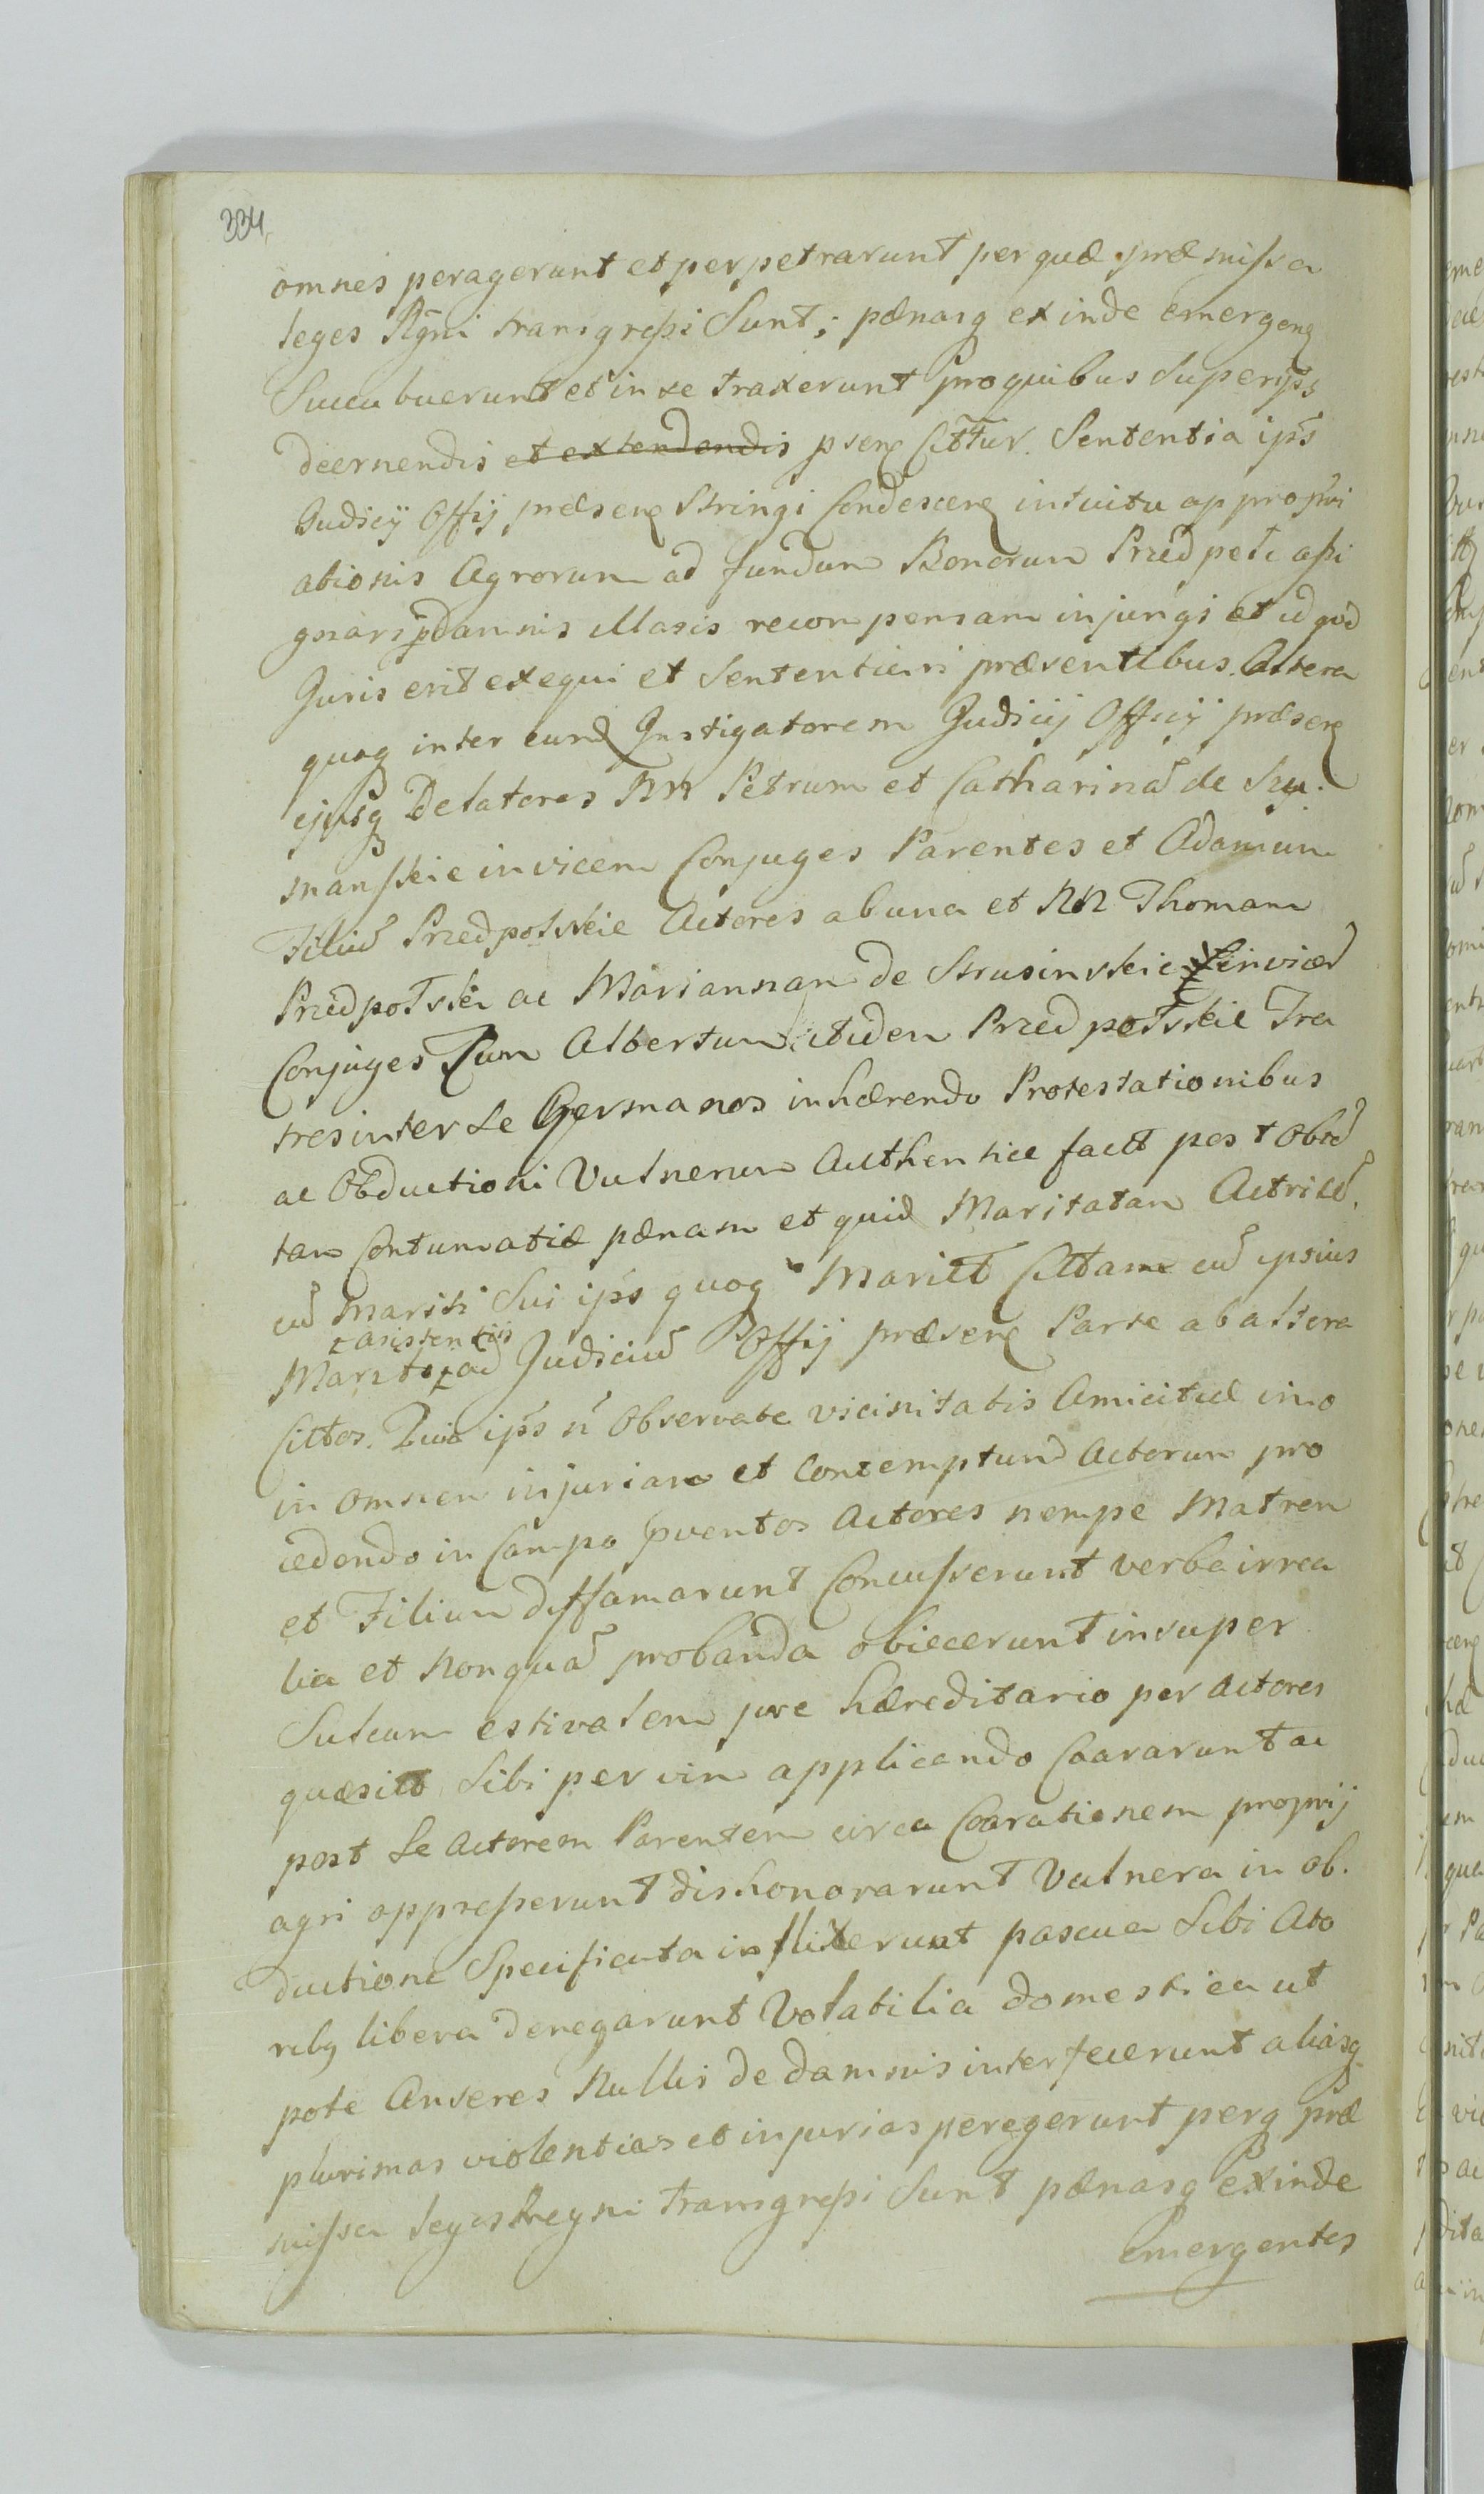 334
omnes peragerunt et perpetrarunt per quæ præmissa
leges Rgni transgressi Sunt; pænasq exinde emergeng
Succubuerunt et in se traxerunt pro quibus Superips
decernendis et extendendis pseng Citttur. Sententia ips
Judicij Offij præseng Stringi Condesceng intuitu appropri
ationis Agrorum ad fundum Bonorum Przedpeł: assi
gnari p damnis illasis recompensam injungi et id qvd
Juris erit exequi et Sententiari præsentibus. Altera
quoq inter eund Instigatorem Judicij Officij præseng
ejusq Delatores NN Petrum et Catharinã de Szy.
manskie invicem Conjuges Parentes et Adamum
Filiũ Przedpołskie Actores ab una et NN Thomam
Przedpołski ac Mariannam de Strusinskie invicẽ
Conjuges Tum Albertum itidem Przedpołskie Fra
tres inter Se Germanos inhærendo Protestationibus
ac Obductioni Vulnerum Authentice factt post obtẽ
tam Contumatiæ pænam et quid Maritatam Actricẽ
cũ Mariti Sui ips quoq Maritt Cittam cũ ipsius
asistentijs
Marito ad Judiciũ Offij præseng Parte ab altera
Cittos. Quia ips ñ Observata vicinitatis Amicitiæ imo
in omnem injuriam et Contemptum Actorum pro
cedendo in Campo pventos Actores nempe Matrem
et Filium diffamarunt Concusserunt verba irrea
lia et Nonquã probanda obiecerunt insuper
Sulcum estivalem jure hæreditario per actores
quæsitt Sibi per vim applicando Coararunt ac
post Se Actorem Parentem circa Coarationem proprij
agri oppresserunt dishonorarunt Vulnera in ob.
ductione Specificata inflixerunt pascua Sibi Acto
ribq libera denegarunt Volatilia domestica ut
pote Anseres Nullis de damnis interfecerunt aliasq
plurimas violentias et injurias peregerunt perq præ
missa leges Regni transgressi Sunt pænasq exinde
Emergentes